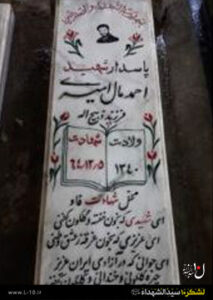 پاسدار شهید
احمد مال امیری
فرزند ذبیح اله
ولادت
شهادت
۱۳۴۰
۶۴/۱۲/۵
محل شهادت فاو
ای شهیدی که بخون خفته و گلگون کفنی
ای عزیزی که بخون غرقه ز عشق وطنی
ای جوانی که در آزادی ایران عزیز
لشکر سیدالشهداء
www.L-10.ir